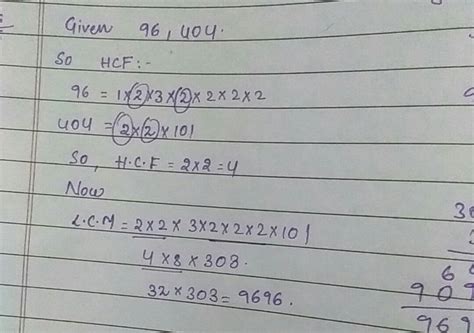 Given 96, 404.
So HCF:-
96 = 1×2×3×2×2×2×2
404 = 2×2×101
So, H.C.F = 2×2=4
Now
L.C.M = 2×2×3×2×2×2×101
4×8×303.
32×303=9696.
909
969